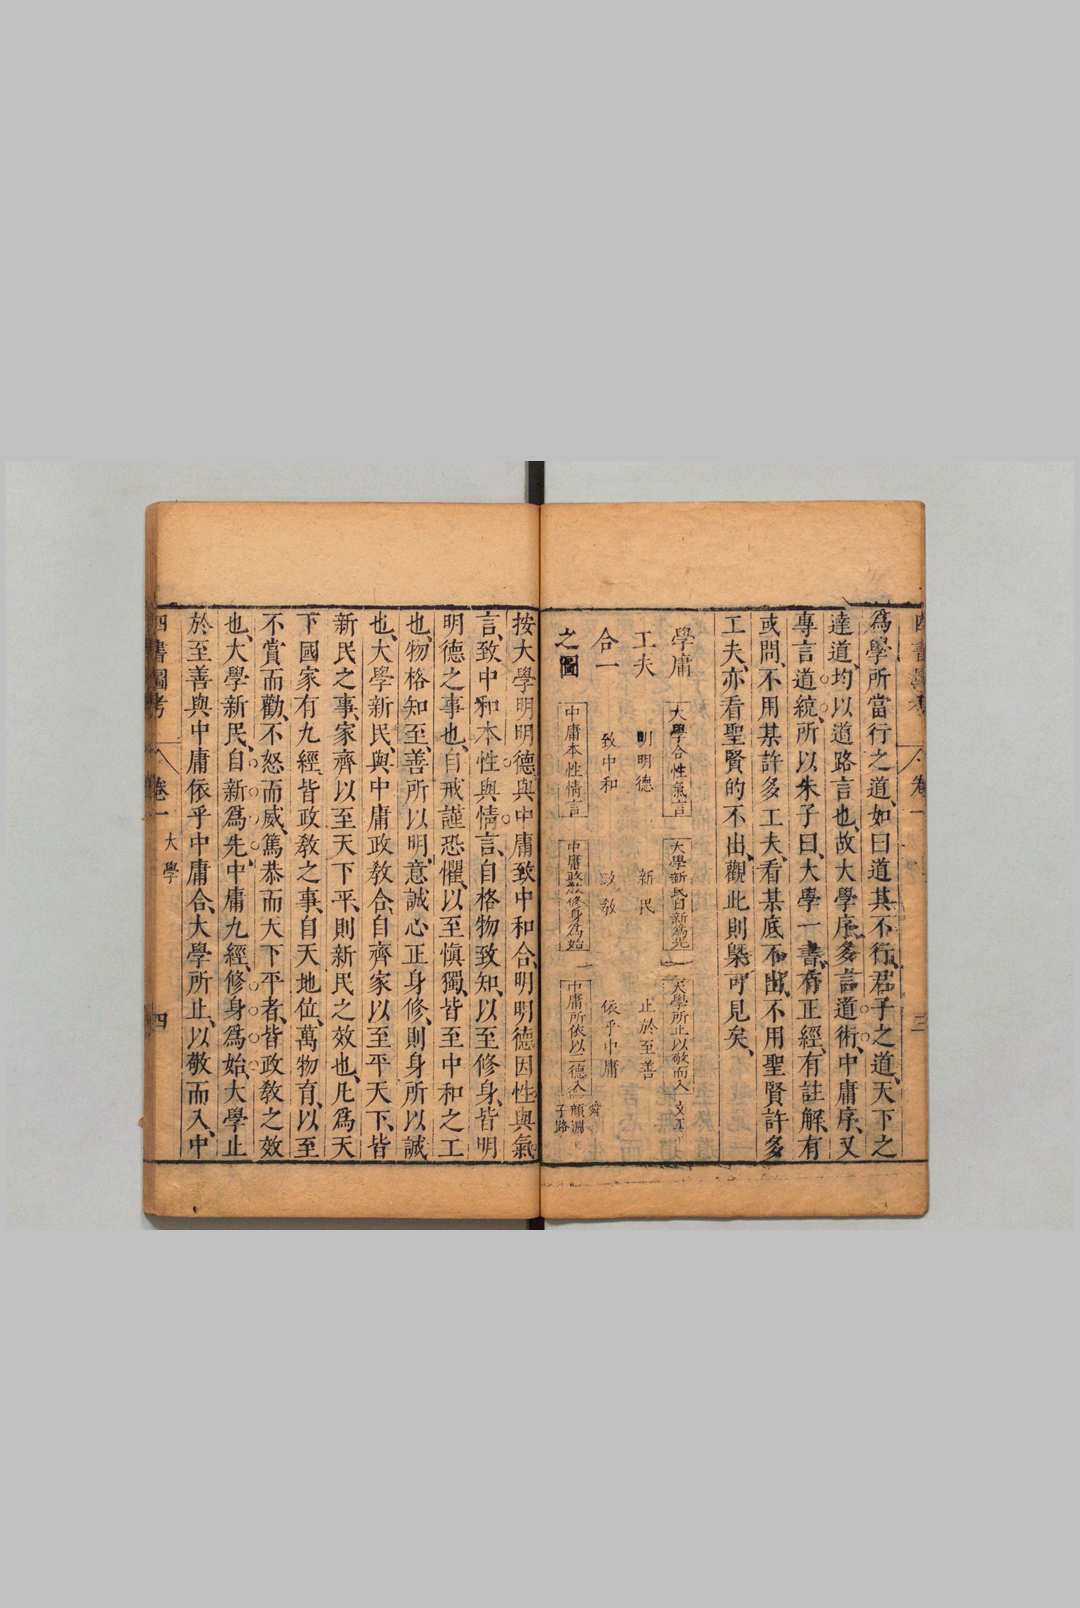 爲學所當行之道、如曰道其不行、君子之道、天下之
達道、均以道路言也、故大學序、多言道術、中庸序、又
專言道統、所以朱子曰、大學一書、有正經、有註解、有
或問、不用某許多工夫、看某底不出、不用聖賢許多
工夫、亦看聖賢的不出、觀此則槩可見矣、
學庸
工夫
合一
之圖
大學合性氣言
明明德
致中和
中庸本性情言
大學新民自新爲先
新民
政教
中庸政教修身爲始
大學所止以敬而入
止於至善
依乎中庸
中庸所依以三德入
文王
舜
顏淵
子路
按大學明明德、與中庸致中和合、明明德因性與氣
言、致中和本性與情言、自格物致知、以至修身、皆明
明德之事也、自戒謹恐懼、以至愼獨、皆至中和之工
也、物格知至、善所以明、意誠心正身修、則身所以誠、
也、大學新民、與中庸政教合、自齊家以至平天下、皆
新民之事、家齊以至天下平、則新民之效也、凡爲天
下國家有九經、皆政教之事、自天地位、萬物育、以至
不賞而勸、不怒而威、篤恭而天下平者、皆政教之效
也、大學新民、自新爲先、中庸九經、修身爲始、大學止
於至善、與中庸依乎中庸合、大學所止、以敬而入、中
四書圖考 卷一 大學 四